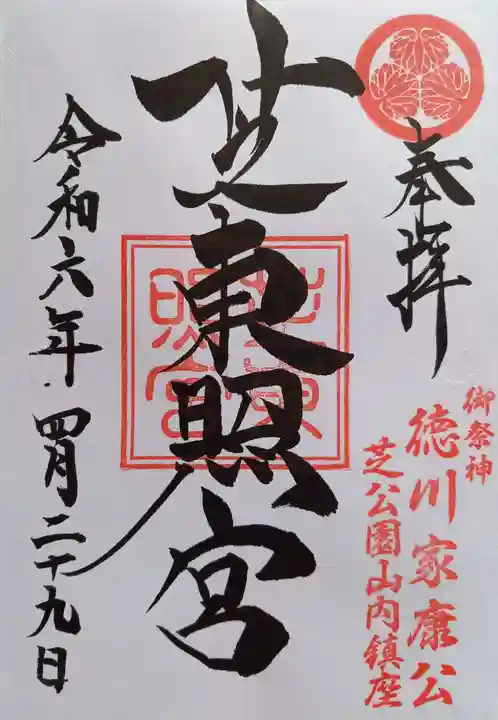 奉拝
御祭神
徳川家康公
芝公園山内鎮座
芝東照宮
芝東
照宮
令和六年四月二十九日